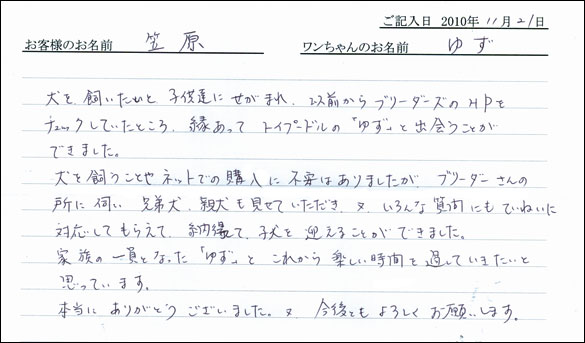 ご記入日 2010年 11月 21日
お客様のお名前 笠原 ワンちゃんのお名前 ゆず
犬を飼いたいと子供達にせがまれ、以前からブリーダーズのHPを
チェックしていたところ、縁あってトイプードルの「ゆず」と出会うことが
できました。
犬を飼うことやネットでの購入に不安はありましたが、ブリーダーさんの
所に伺い、兄弟犬、親犬も見せていただき、又、いろんな質問にもていねいに
対応してもらえて、納得して、子犬を迎えることができました。
家族の一員となった「ゆず」と これから楽しい時間を過していきたいと
思っています。
本当にありがとうございました。又、今後ともよろしくお願いします。